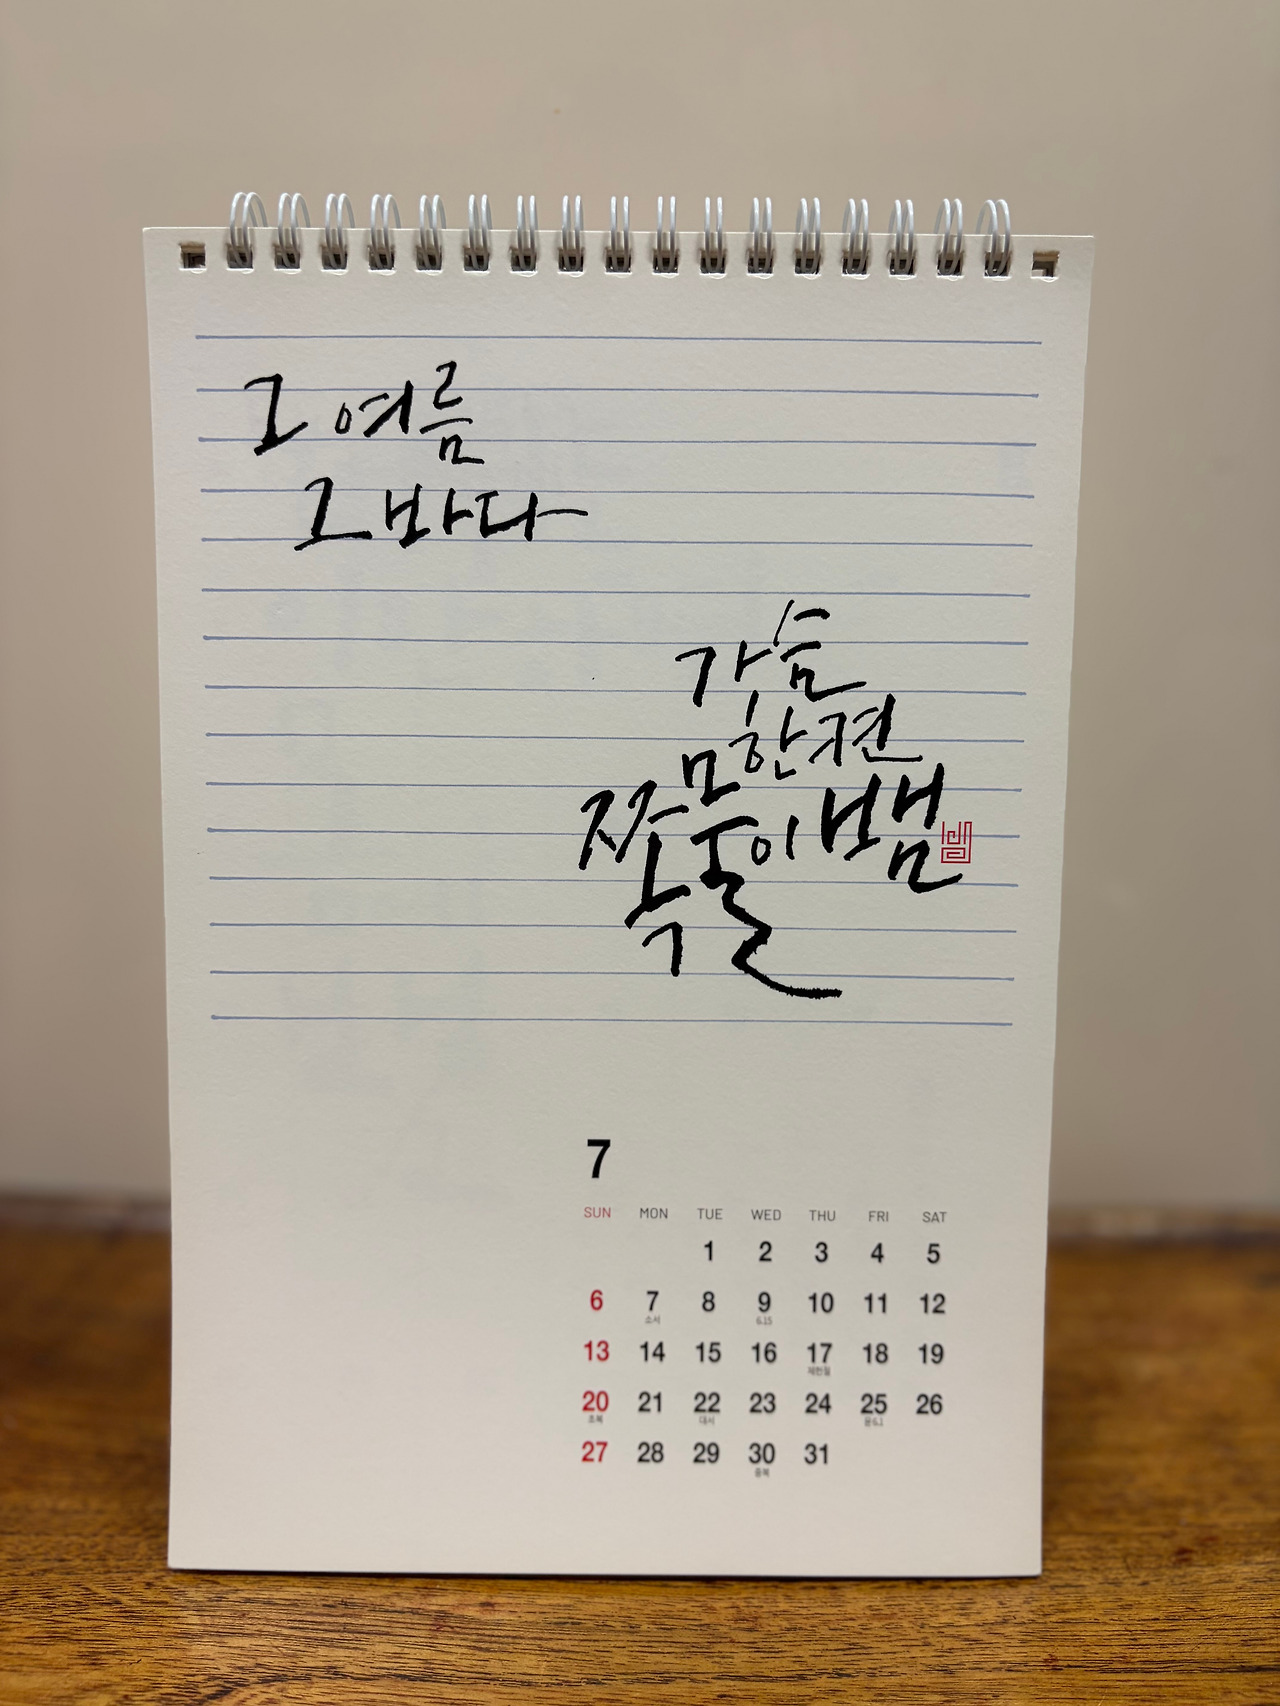 그 여름
그 바다
가슴
한켠
쪽물이 뱀
7
SUN MON TUE WED THU FRI SAT
1 2 3 4 5
6 7 8 9 10 11 12
소서 6.15
13 14 15 16 17 18 19
제헌절
20 21 22 23 24 25 26
초복 대서 윤6.1
27 28 29 30 31
중복